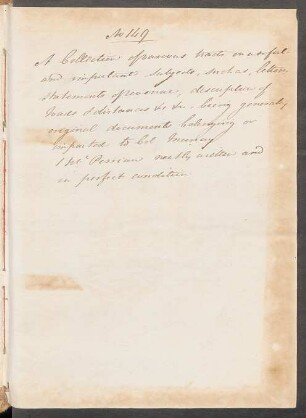 No 149
A Collection of various tracts on useful
and important subjects, such as, letters
statements of revenue, description of
roads & distances &c &c. being generally
original documents belonging or
imparted to Col Murray
1 Vol Persian neatly written and
in perfect condition